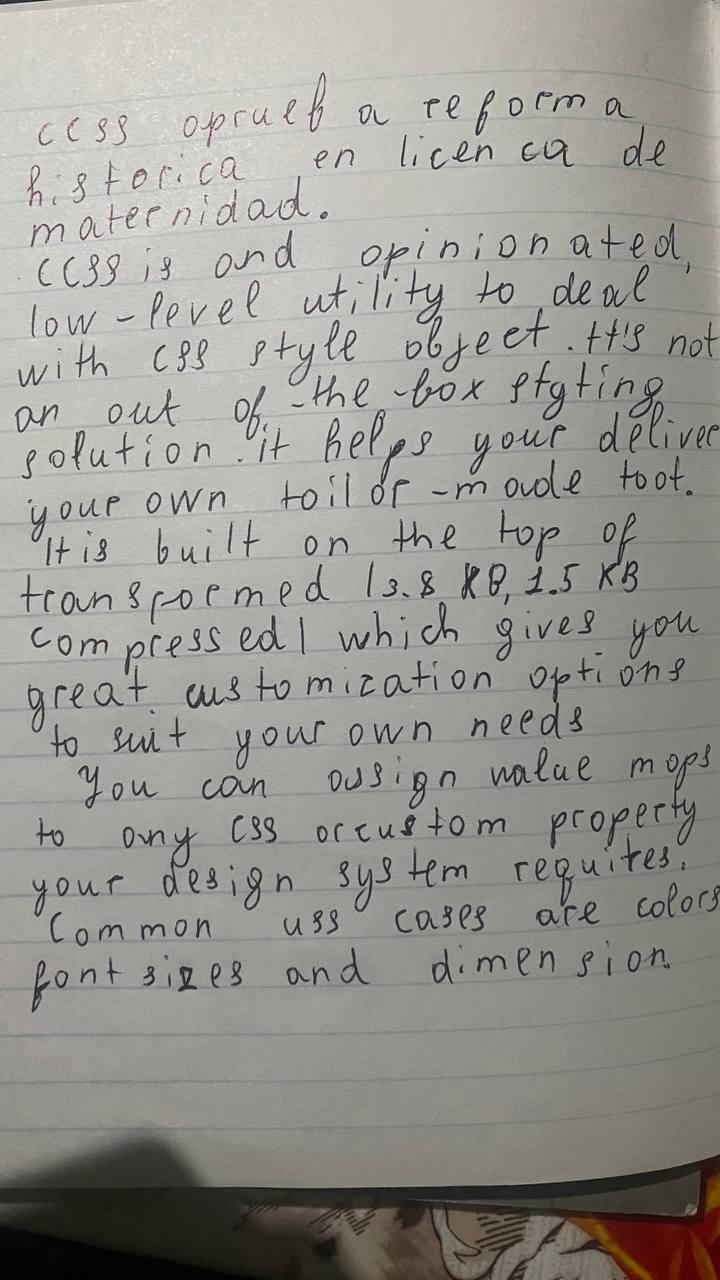 CCSS oprueb a reforma
historica en licen ca de
maternidad.
CCSS is and opinionated,
low-level utility to deal
with CSS style object. It's not
an out of-the-box styting
solution. it helps your deliver
your own toilor-made toot.
It is built on the top of
transformed (3.8 KB, 1.5 KB
compressed) which gives you
great customization options
to suit your own needs
You can assign value mops
to any CSS orcustom property
your design system requites.
Common uss cases are colors
font sizes and dimension.